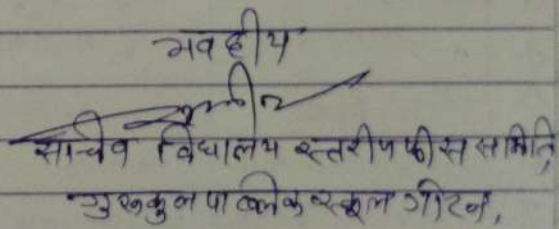 भवदीय
सचिव विधालय स्तरीय फीस समिति,
गुरुकुल पब्लिक स्कूल गोटन,